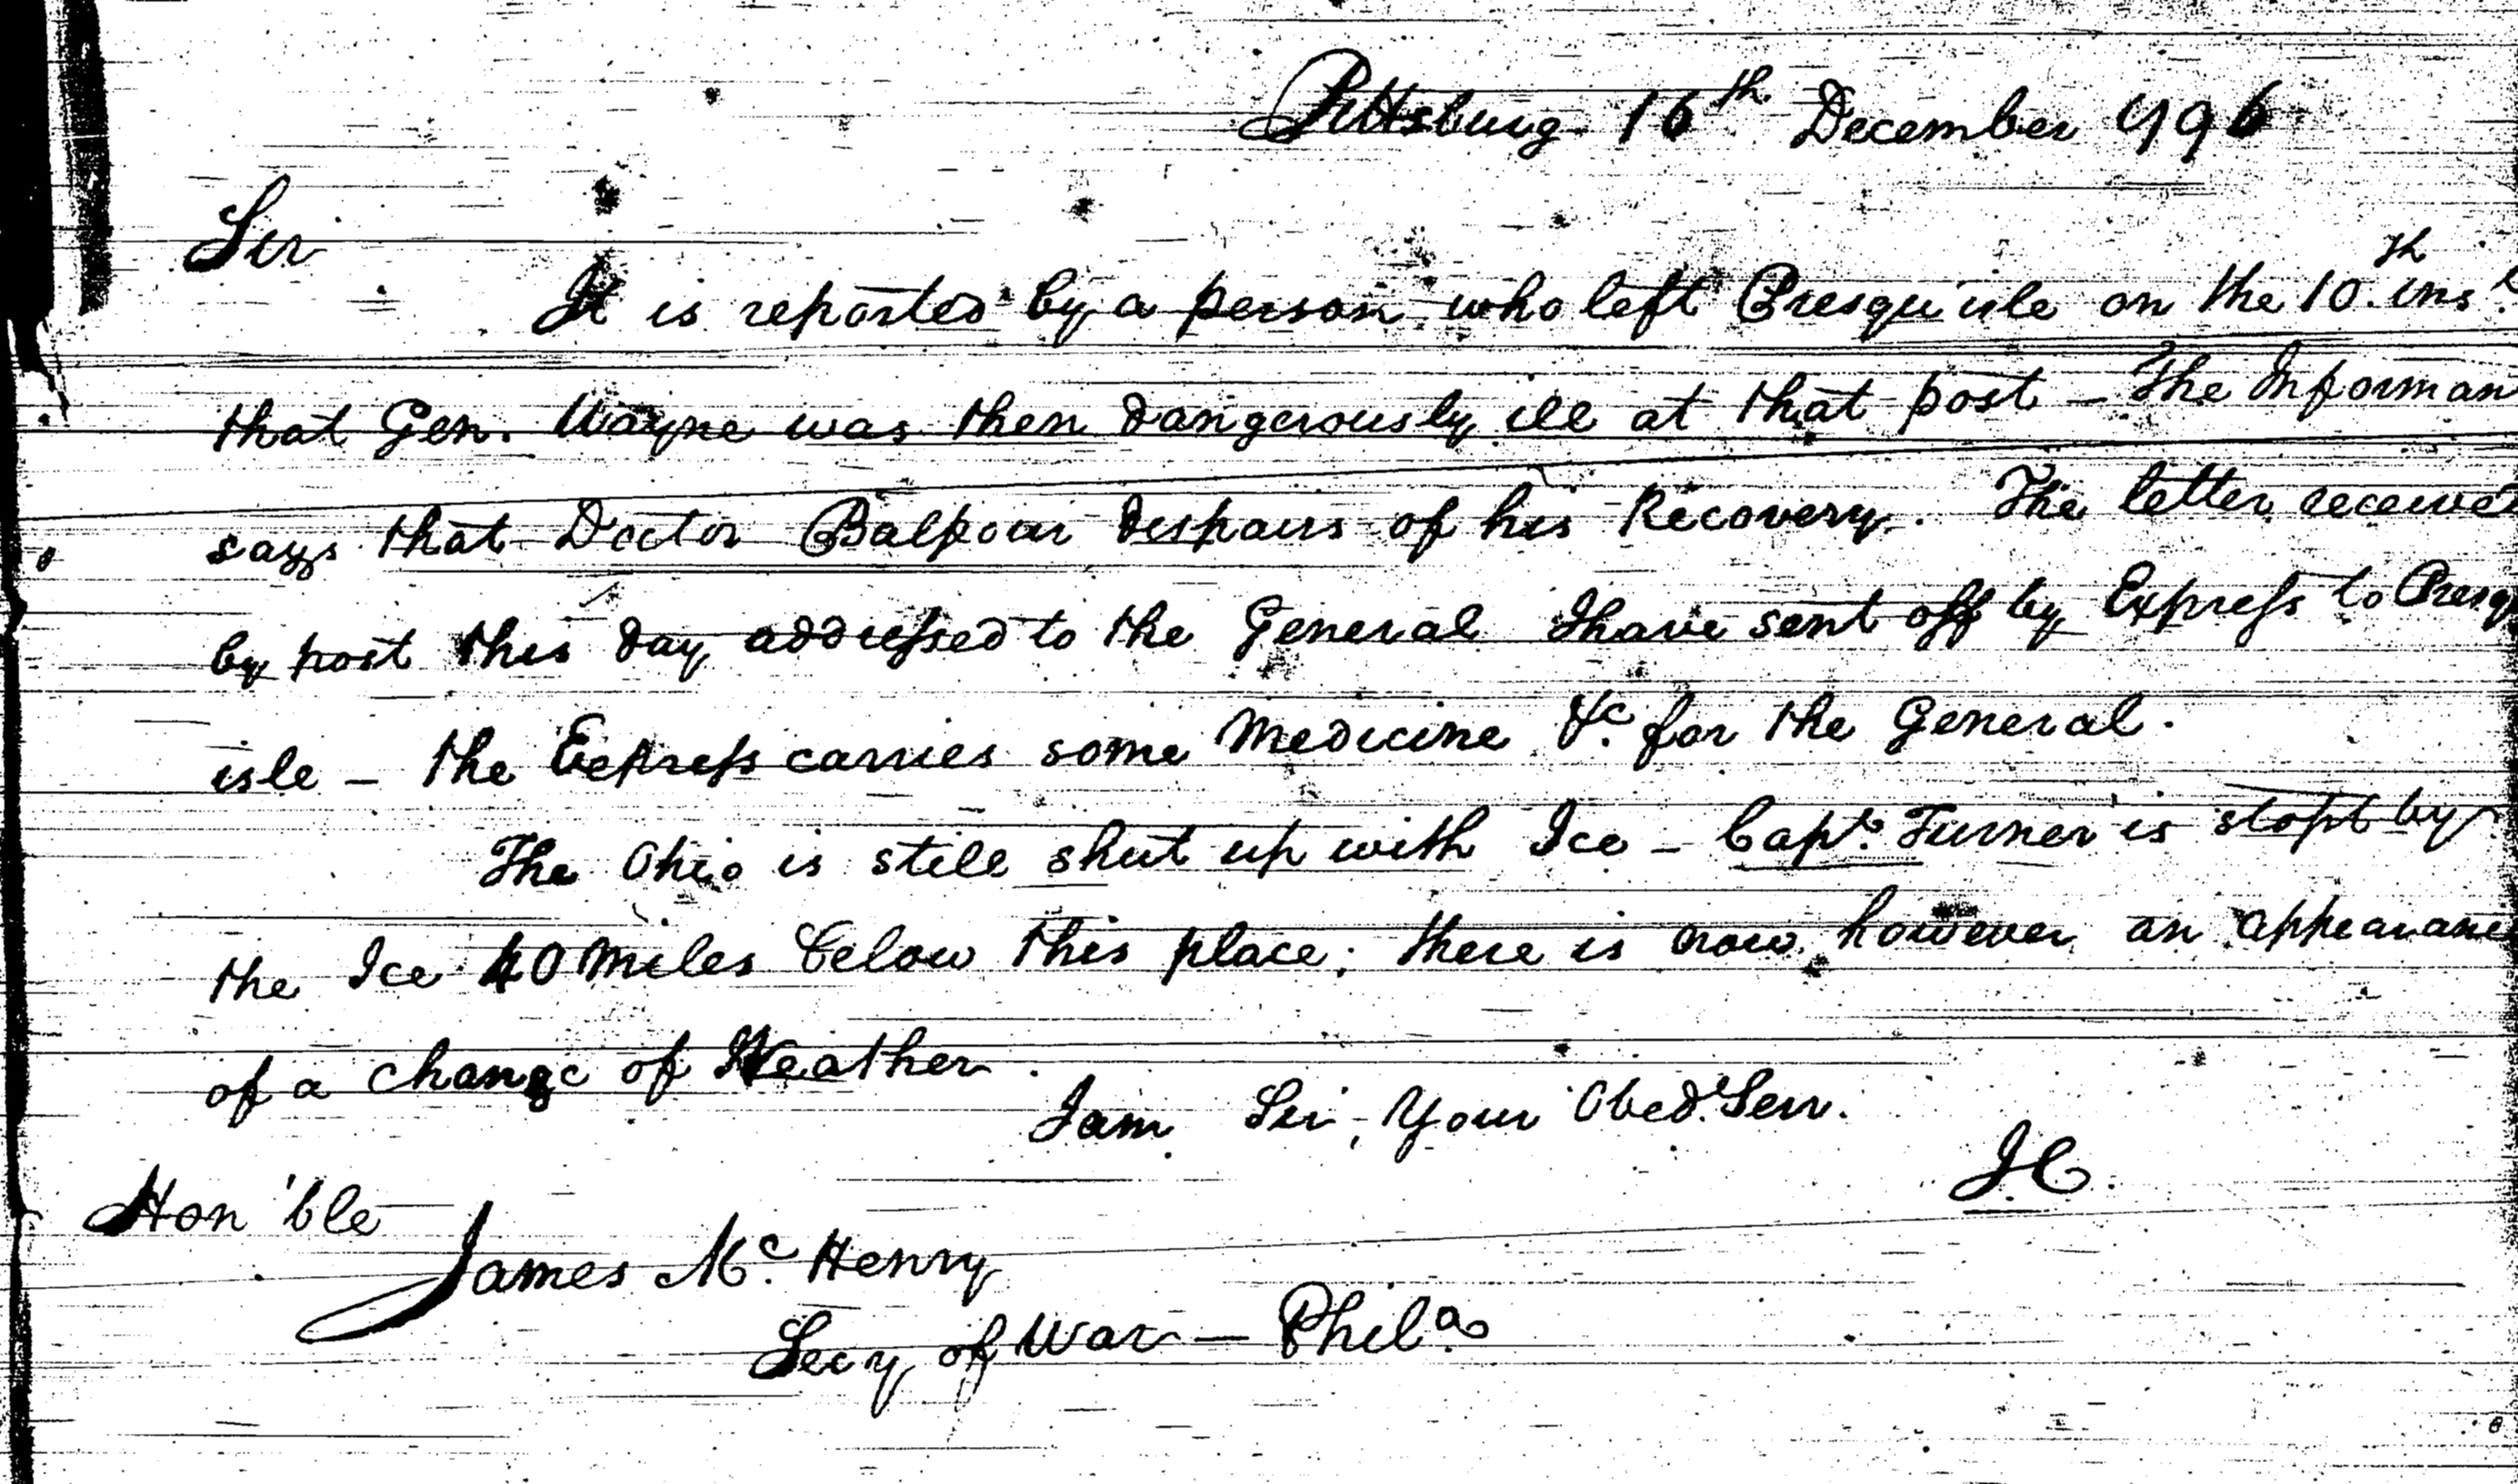 Pittsburg 16th December 1796
Sir
It is reported by a person who left Presqu'isle on the 10th. inst.
that Gen. Wayne was then dangerously ill at that post – The Informan
says that Doctor Balfour despairs of his Recovery. The letter received
by post this day addressed to the General I have sent off by Express to Presq
isle – the Express carries some Medicine &c. for the General.
The Ohio is still shut up with Ice – Capt. Turner is stopt by
the Ice 40 miles below this place; there is now however an appearance
of a change of Weather.
I am Sir, Your Obed. Serv.
J.C.
Hon'ble
James Mc. Henry
Secy of War – Phila.